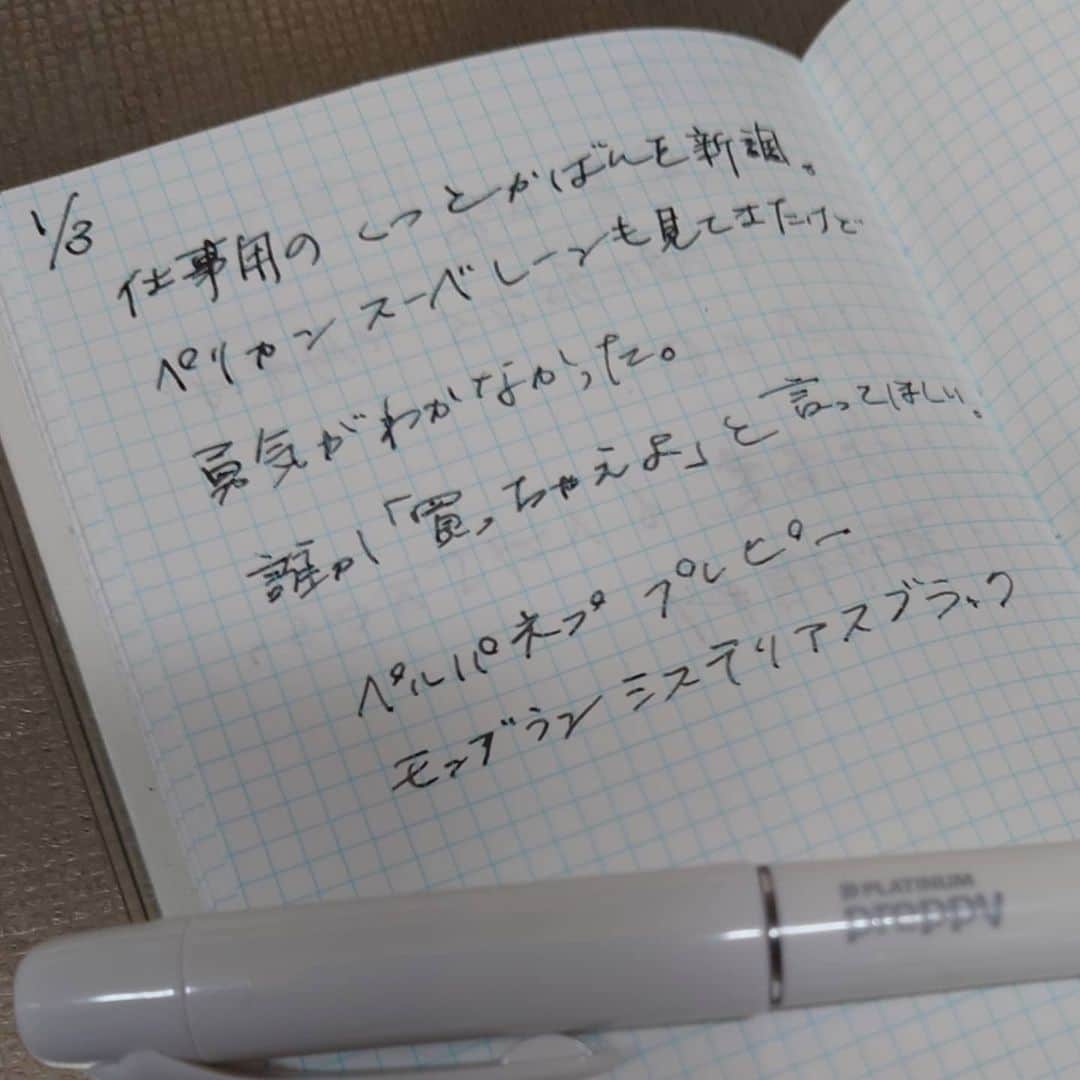 1/3
仕事用のくつとかばんを新調。
ペリカンスーベレーンも見てきたけど
勇気がわかなかった。
誰か「買っちゃえよ」と言ってほしい。
ペルパネプ プレピー
モンブランミステリアスブラック
PLATINUM
preppy